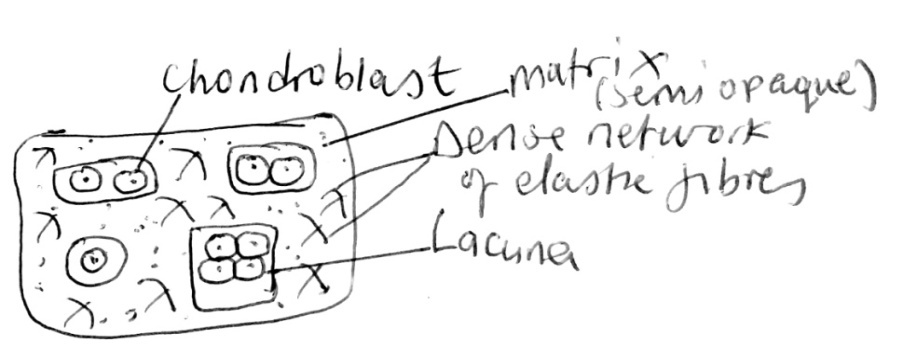 Chondroblast
matrix
(semi opaque)
Dense network
of elastic fibres
Lacuna